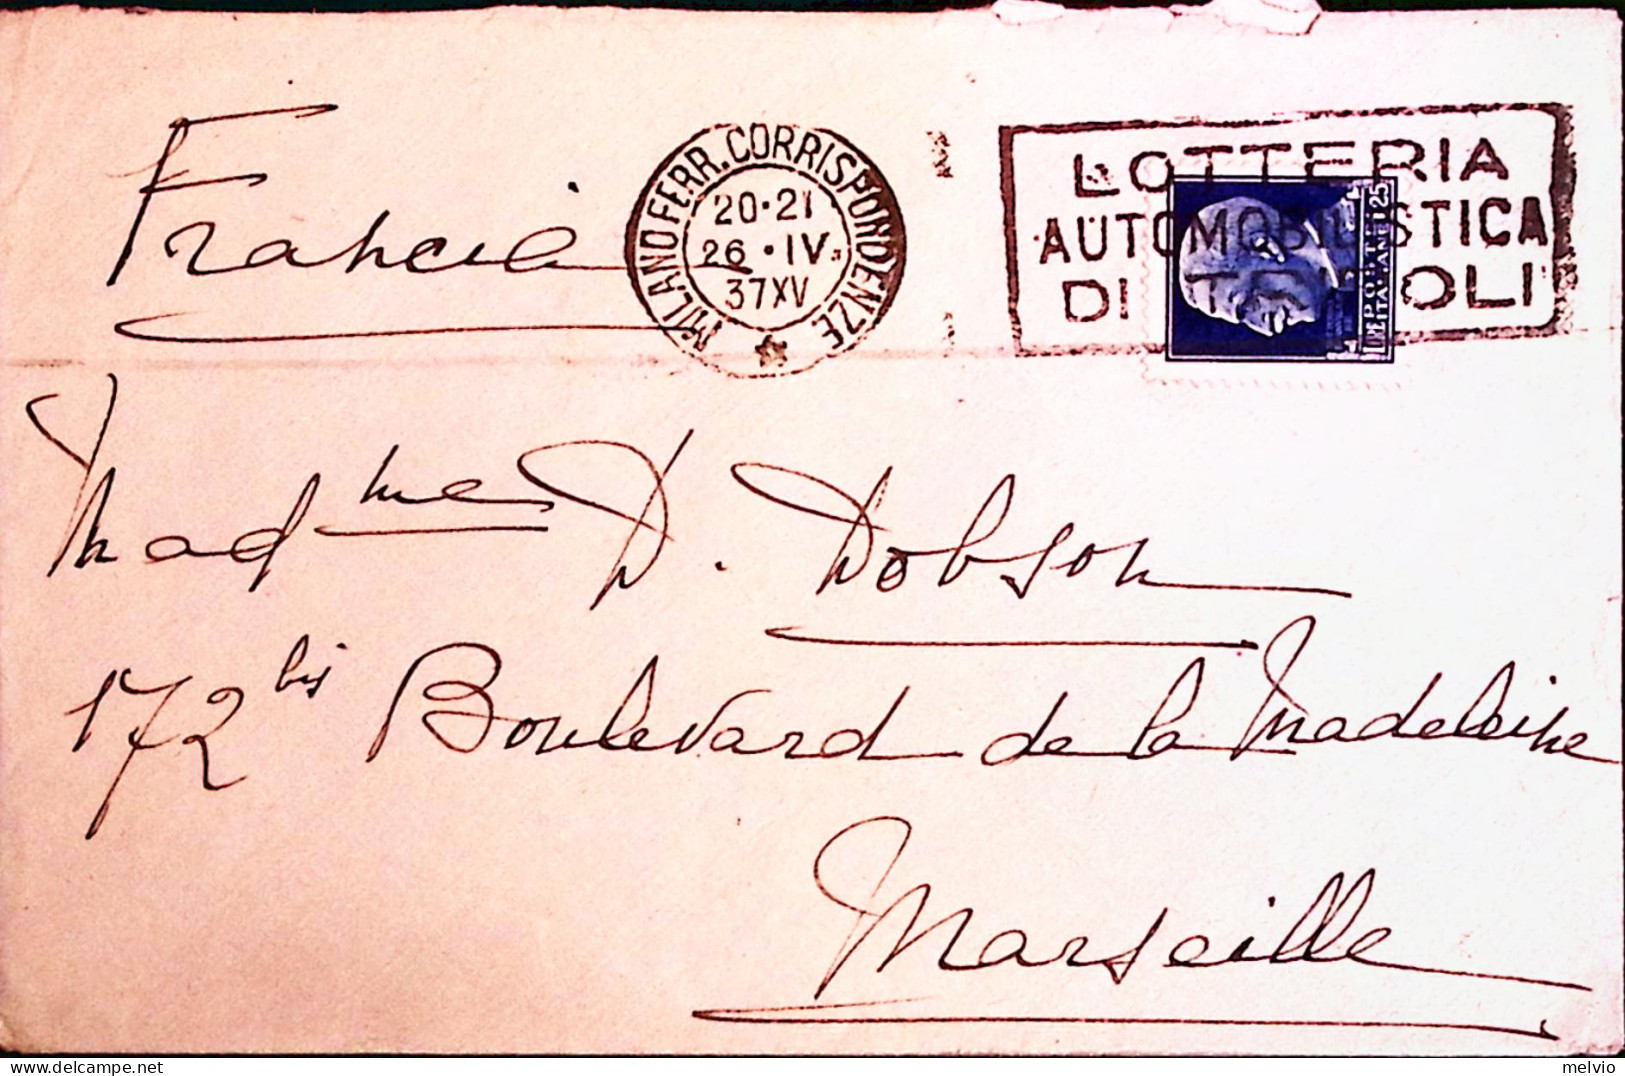 Francia
MILANO FERR. CORRISPONDENZE
20·21
26·IV·
37XV
LOTTERIA
AUTOMOBILISTICA
DI TRIPOLI
POSTE ITALIANE L 1,25
Mad me D. Dobson
172 bis Boulevard de la Madeleine
Marseille
melvio